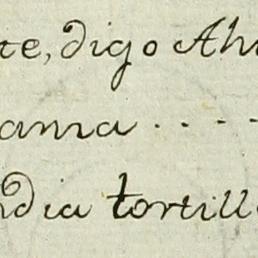 te, digo Ah
ama . . . .
ndia tortill